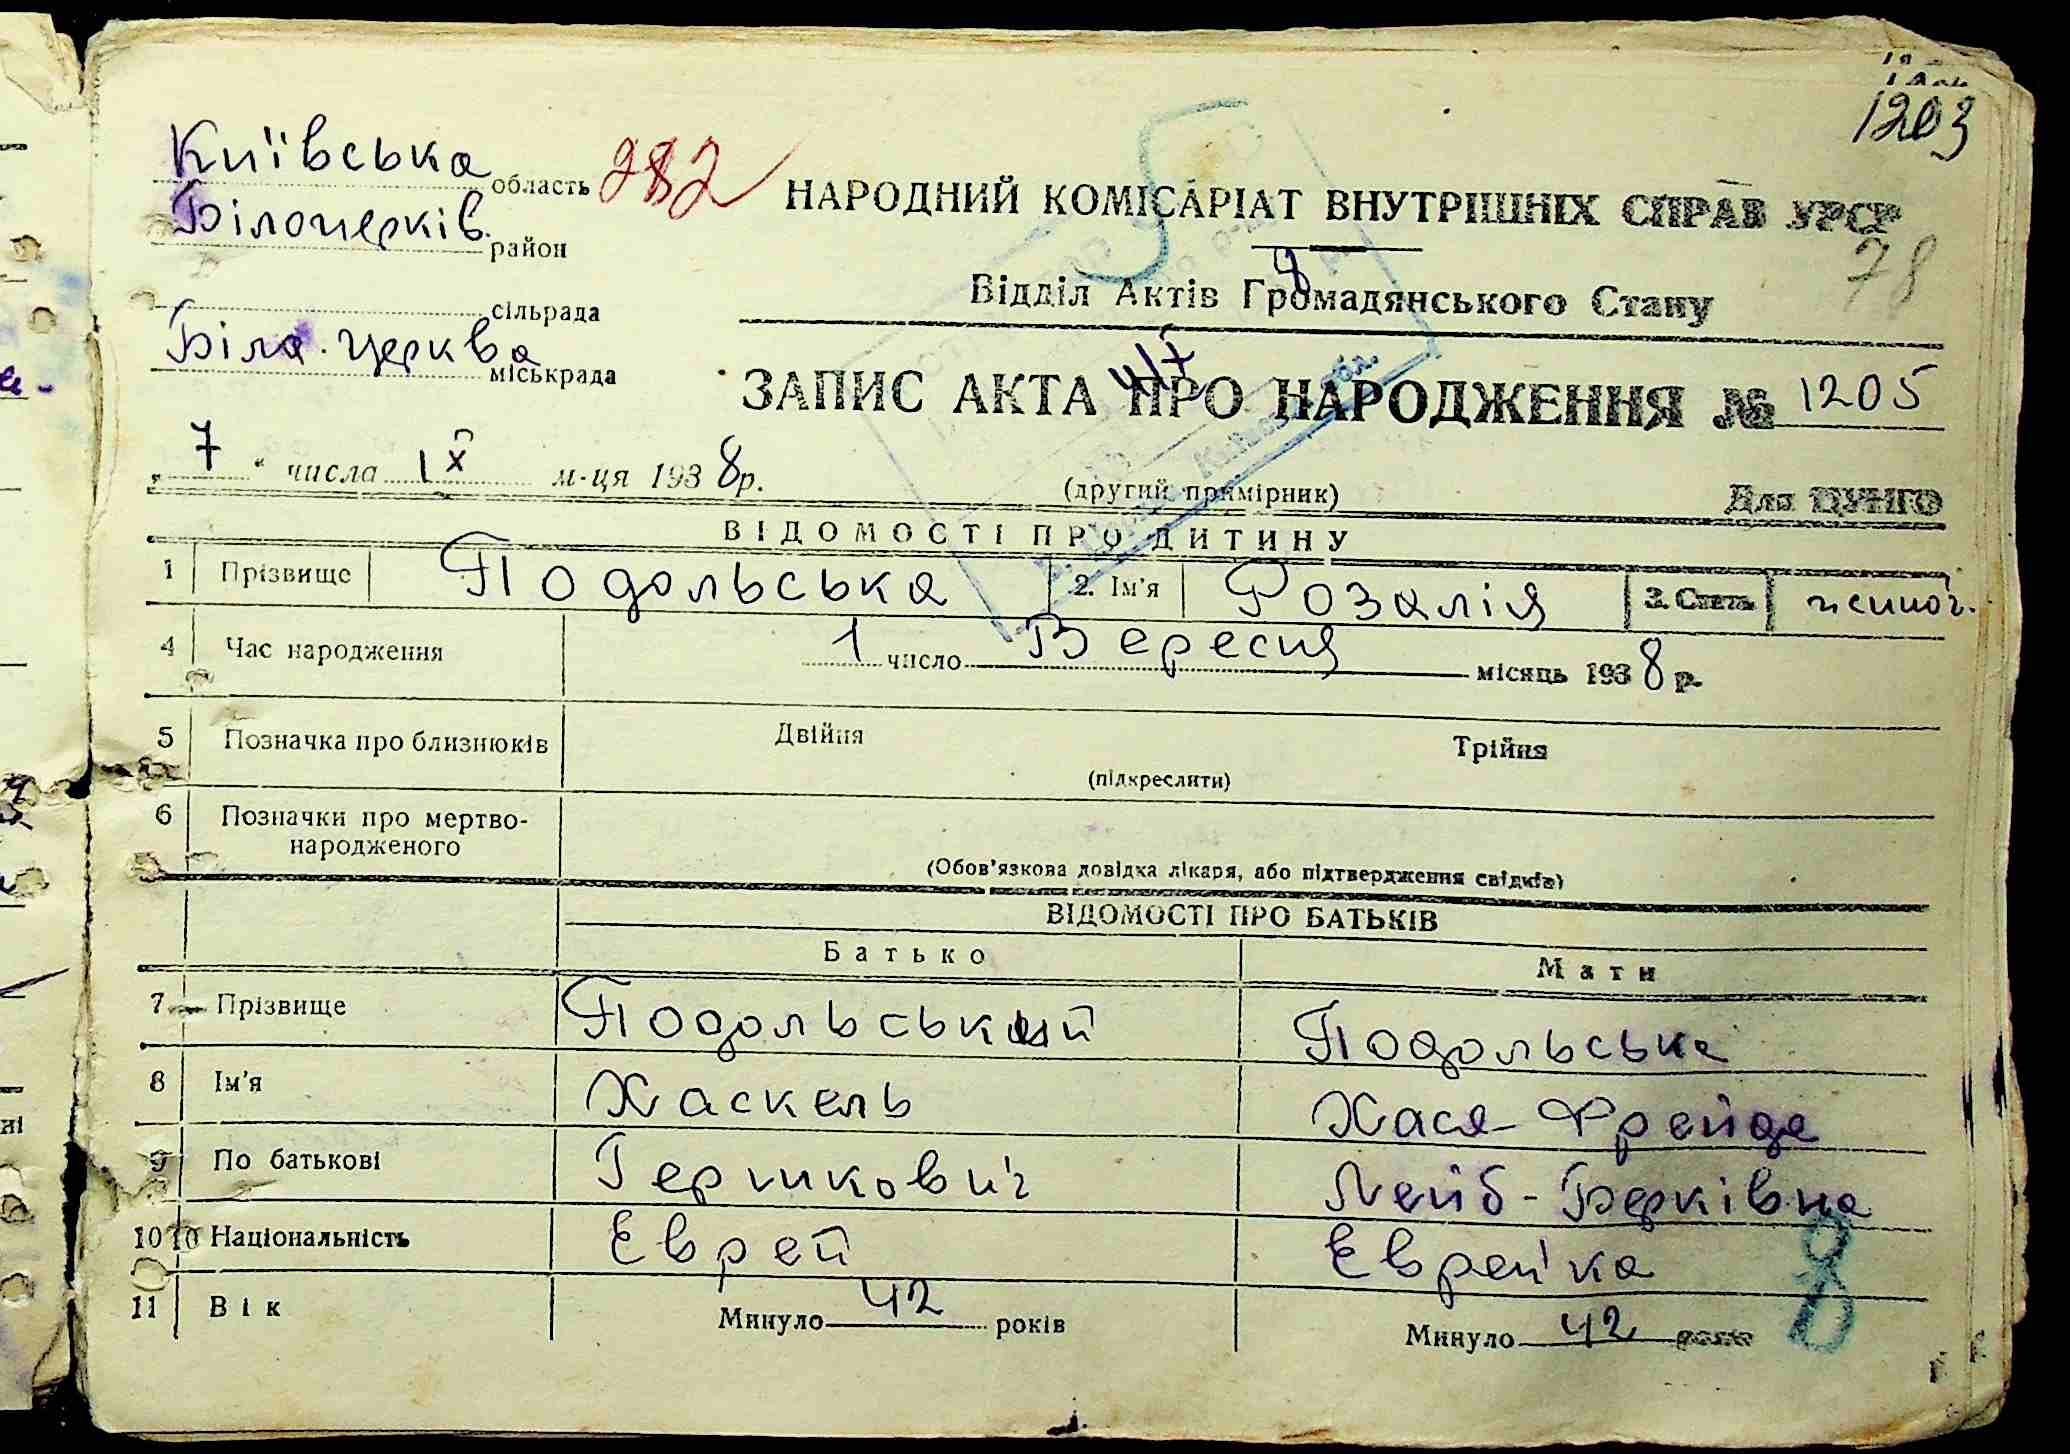 1203
Київська область 282
НАРОДНИЙ КОМІСАРІАТ ВНУТРІШНІХ СПРАВ УРСР
Білоцерків. район
78
Відділ Актів Громадянського Стану
сільрада
Біла Церква міськрада
ЗАПИС АКТА ПРО НАРОДЖЕННЯ № 1205
7 " числа IX м-ця 1938р.
(другий примірник)
Для ЦУНГО
ВІДОМОСТІ ПРО ДИТИНУ
1 Прізвище Подольська 2. Ім'я Розалія 3. Стать жіноч.
4 Час народження 1 число Вересня місяць 1938 р.
5 Позначка про близнюків Двійня Трійня
(підкреслити)
6 Позначки про мертво-
народженого
(Обов'язкова довідка лікаря, або підтвердження свідків)
ВІДОМОСТІ ПРО БАТЬКІВ
Батько Мати
7 Прізвище Подольський Подольська
8 Ім'я Хаскель Хася-Фрейда
9 По батькові Гершкович Лейб-Берківна
10 Національність Еврей Еврейка
11 Вік Минуло 42 років Минуло 42 років